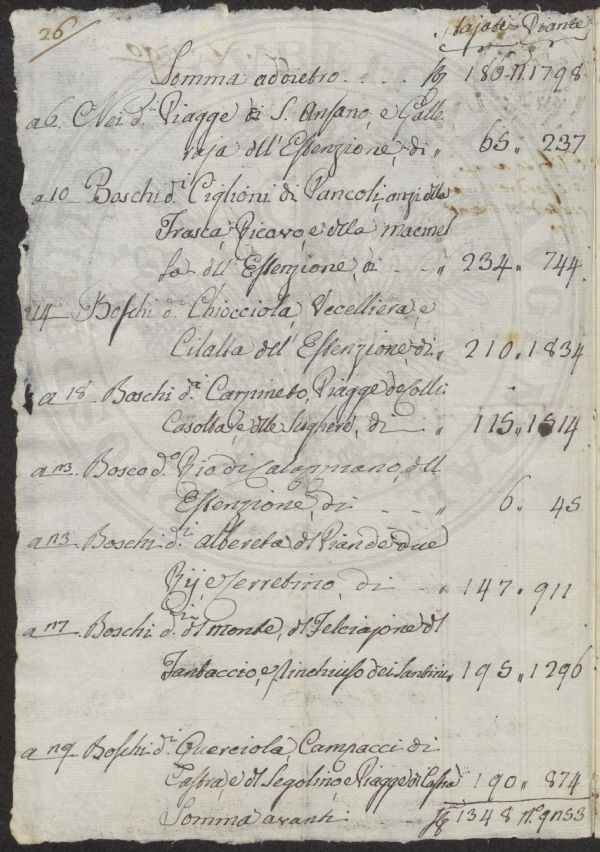 26
Stajate Piante
Somma addietro - - - S:a 186 n. 1798
a 6. Nei d.i Piagge di S. Ansano, e Galle
raja dell'Estenzione, di „ 65 „ 237
a 10 Boschi d.i Ciglioni di Pancoli, anzi della
Frasca, Ricavo, e della macinel
la dell'Estenzione, di - - „ 234 „ 744
a 14 Boschi d.i Chiocciola, Uccelliera, e
Citalla dell'Estenzione, di „ 210 „ 1834
a 18. Boschi d.i Carpineto, Piagge de Colli
Casotta, e delle Sughere, di - „ 115 „ 1514
a n3 Bosco d.o Rio di Calappiano, dell
Estenzione, di - - - „ 6 „ 45
a n3 Boschi d.i Albereta del Pian de due
Rij, e Cerretino, di - - „ 147 „ 911
a n7 Boschi d.i del monte, del Felciajone del
Fantaccio, e Rinchiuso dei Santini „ 195 „ 1296
a n9 Boschi d.i Querciola Campacci di
Castra, e del Segolino, e Piagge di Castra 190 „ 874
Somma avanti - - 1348 N.o 9n53